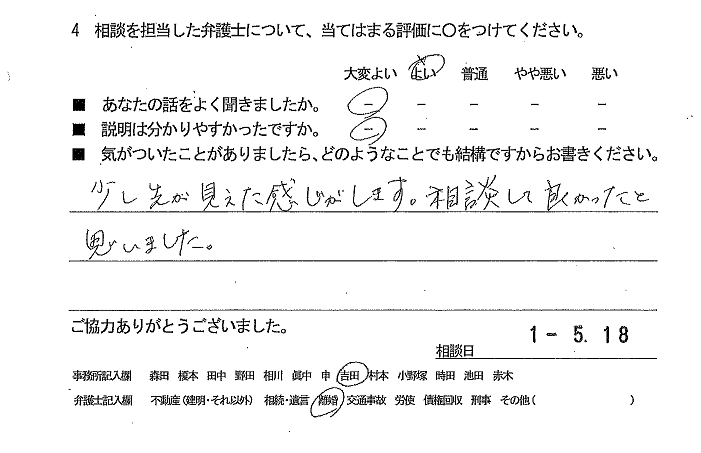 4 相談を担当した弁護士について、当てはまる評価に○をつけてください。
大変よい よい 普通 やや悪い 悪い
■ あなたの話をよく聞きましたか。 － － － － －
■ 説明は分かりやすかったですか。 － － － － －
■ 気がついたことがありましたら、どのようなことでも結構ですからお書きください。
少し先が見えた感じがします。相談して良かったと
思いました。
ご協力ありがとうございました。
1-5.18
相談日
事務所記入欄 森田 榎本 田中 野田 相川 眞中 申 吉田 村本 小野塚 時田 池田 赤木
弁護士記入欄 不動産（建明・それ以外） 相続・遺言 離婚 交通事故 労使 債権回収 刑事 その他（ ）